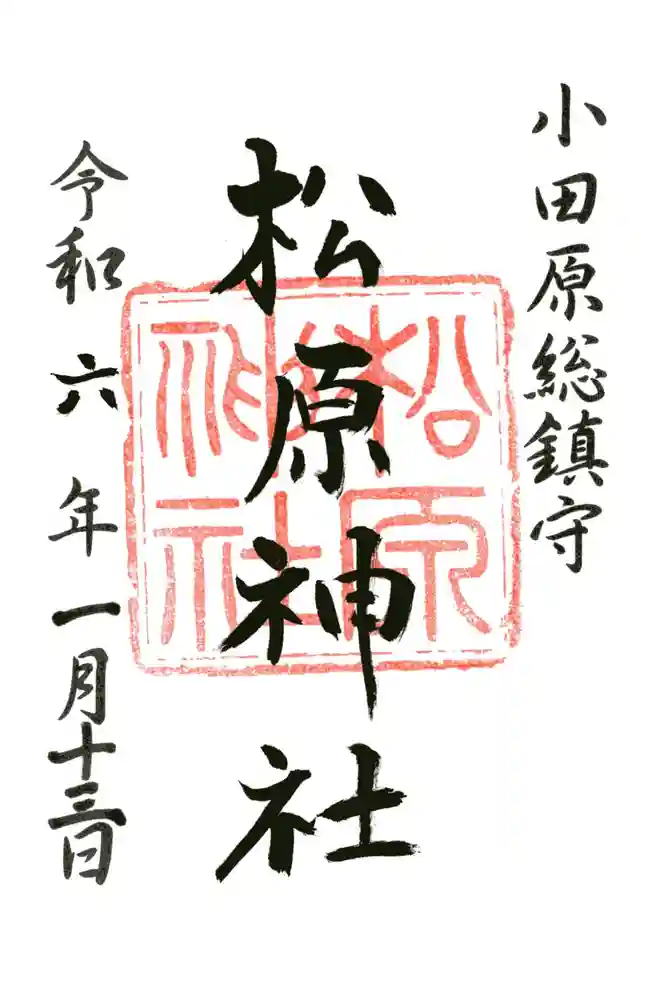 小田原総鎮守
松原神社
松原神社
令和六年一月十三日